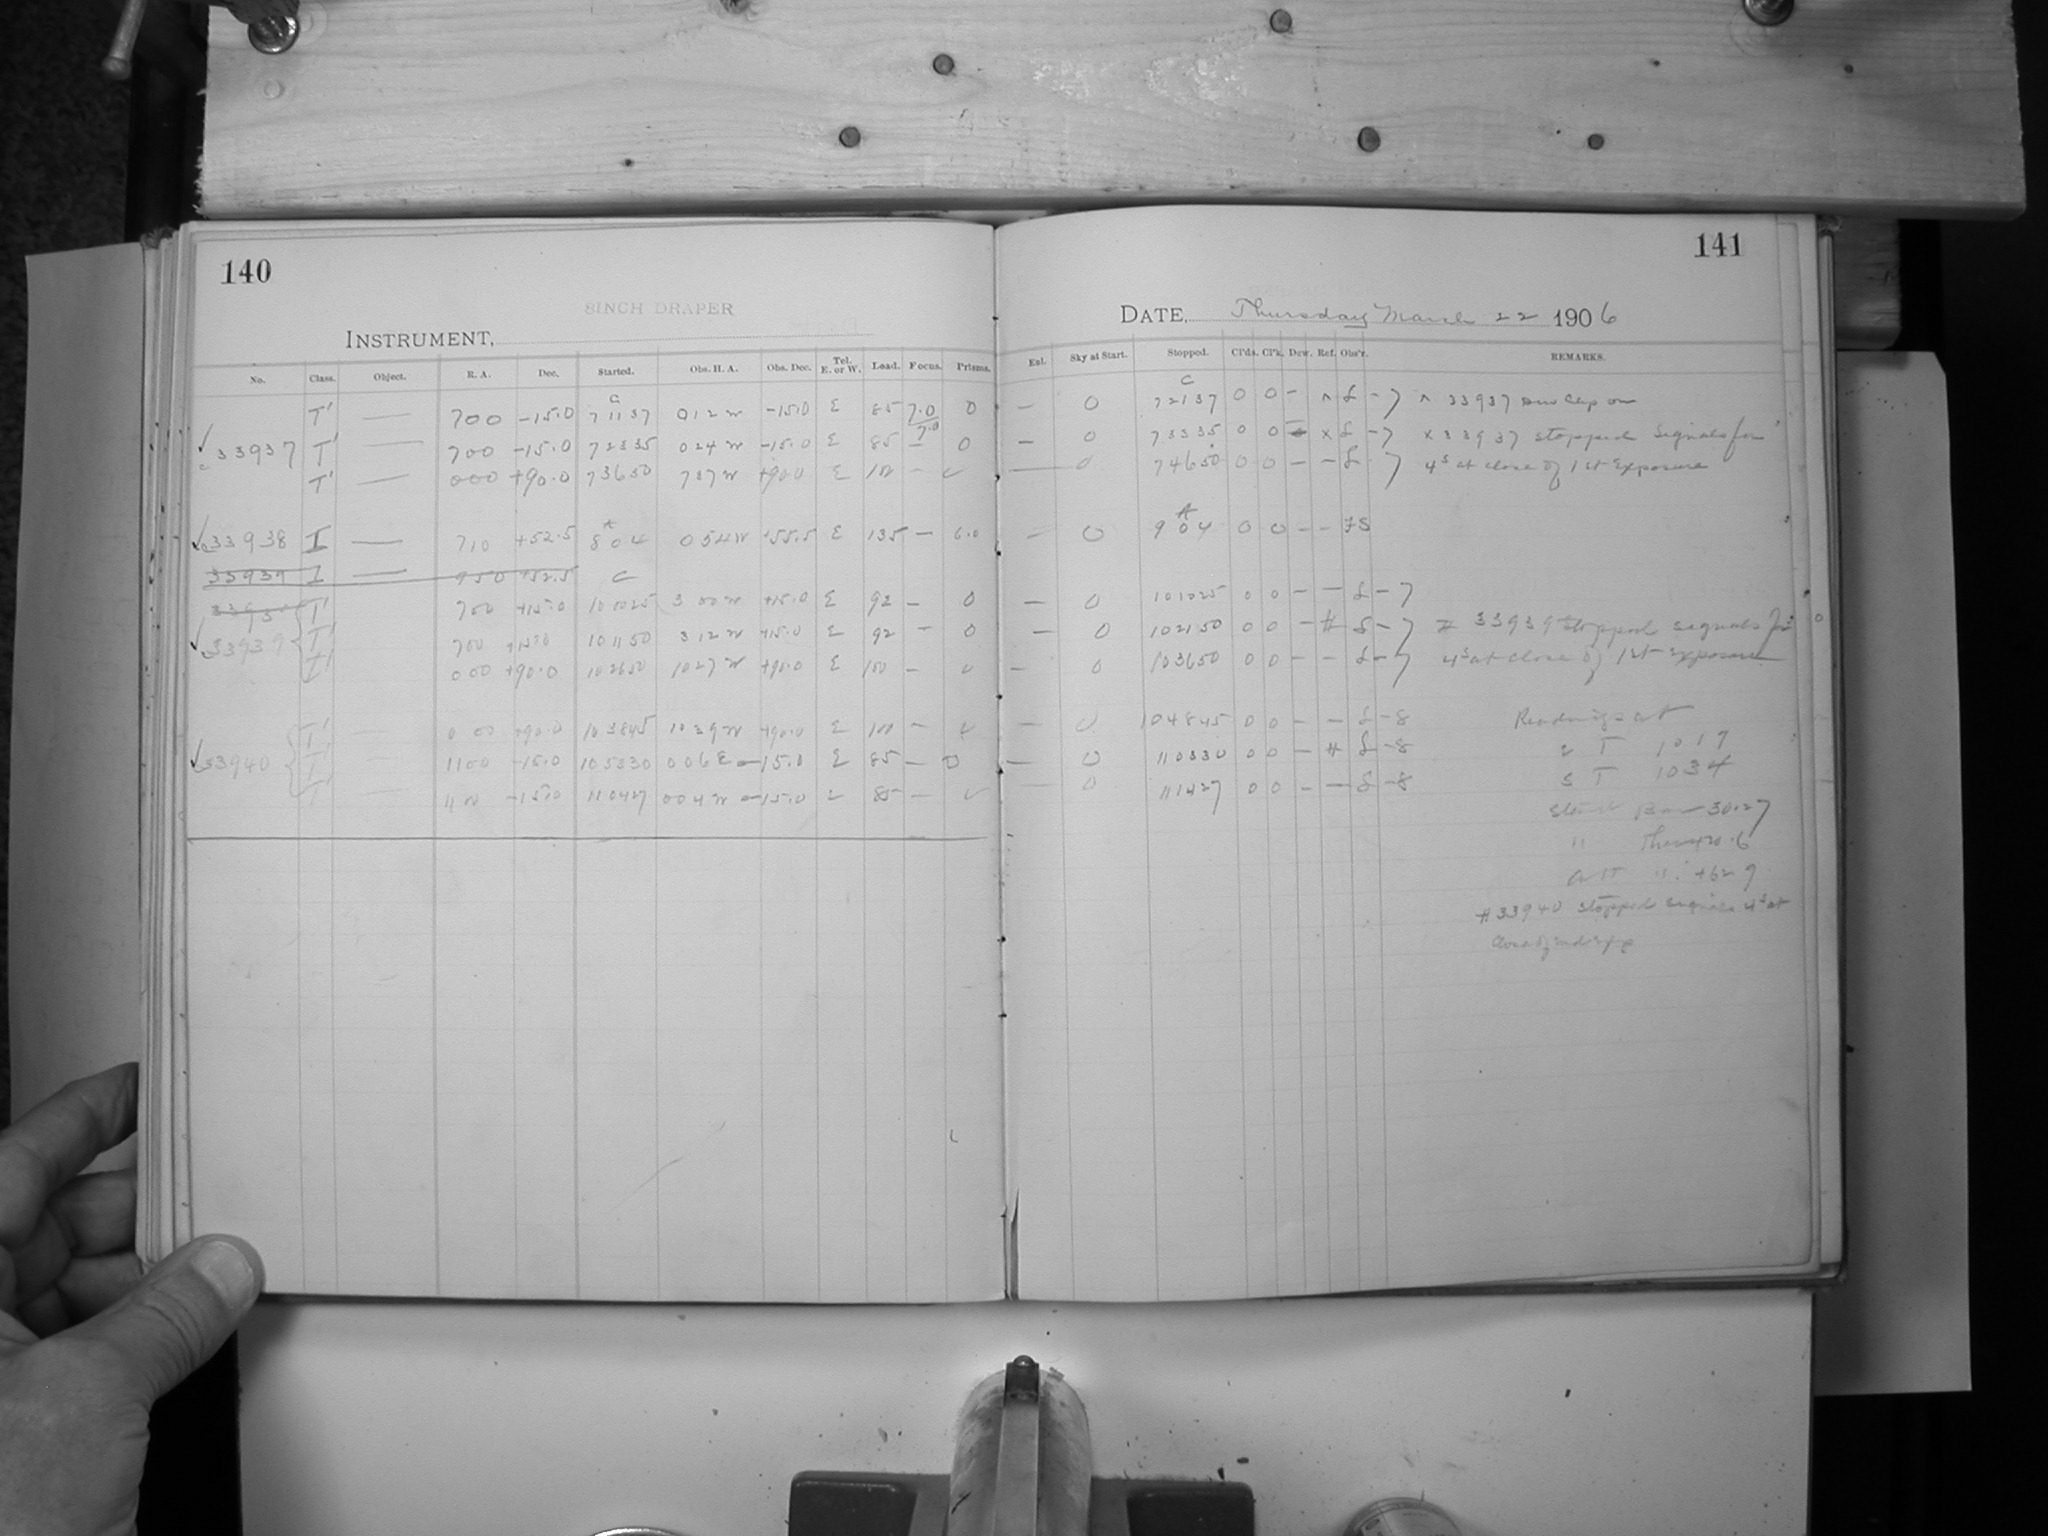 140
8INCH DRAPER
INSTRUMENT,
No. Class. Object. R. A. Dec. Started. Obs. H. A. Obs. Dec. Tel. E. or W. Lead. Focus. Prisms.
C
T' — 700 -15.0 71137 012 W -15.0 E 85 7.0 0
7.0
33937 T' — 700 -15.0 72335 024 W -15.0 E 85 — 0
T' — 000 +90.0 73650 737 W +90.0 E 100 —
A
33938 I — 710 +52.5 804 054 W +55.5 E 135 —
33939 I — +52.5 C
T' 700 +15.0 101025 300 W +15.0 E 92 — 0
33939 T' 700 +15.0 101150 312 W +15.0 E 92 — 0
T' 000 +90.0 102650 1027 W +90.0 E 100 —
T' — 000 +90.0 103845 1039 W +90.0 E 100 —
33940 T' — 1100 -15.0 105330 006 E -15.0 E 85 — 0
T' — 1100 -15.0 110427 004 W -15.0 85 —
141
DATE, Thursday March 22 1906
Enl. Sky at Start. Stopped. Cl'ds. Cl'k. Dew. Ref. Obs'r. REMARKS.
C
— 0 72137 0 0 — ^ L - 7 ^ 33937 Dew Cap on
— 0 73335 0 0 x L - 7 x 33937 stopped signals for
— 0 74650 0 0 — — L 7 4s at close of 1st Exposure
A
— 0 904 0 0 — — FS
— 0 101025 0 0 — — L - 7
— 0 102150 0 0 — # L - 7 # 33939 stopped signals for
— 0 103650 0 0 — — L - 7 4s at close of 1st exposure
— 0 104845 0 0 — — L - 8 Readings at
— 0 110330 0 0 — # L - 8 2 T 1017
— 0 111427 0 0 — — L - 8 S T 1034
Start Bar 30.27
" Ther
Att " +62.9
# 33940 stopped signals 4s at
close of 2nd exp